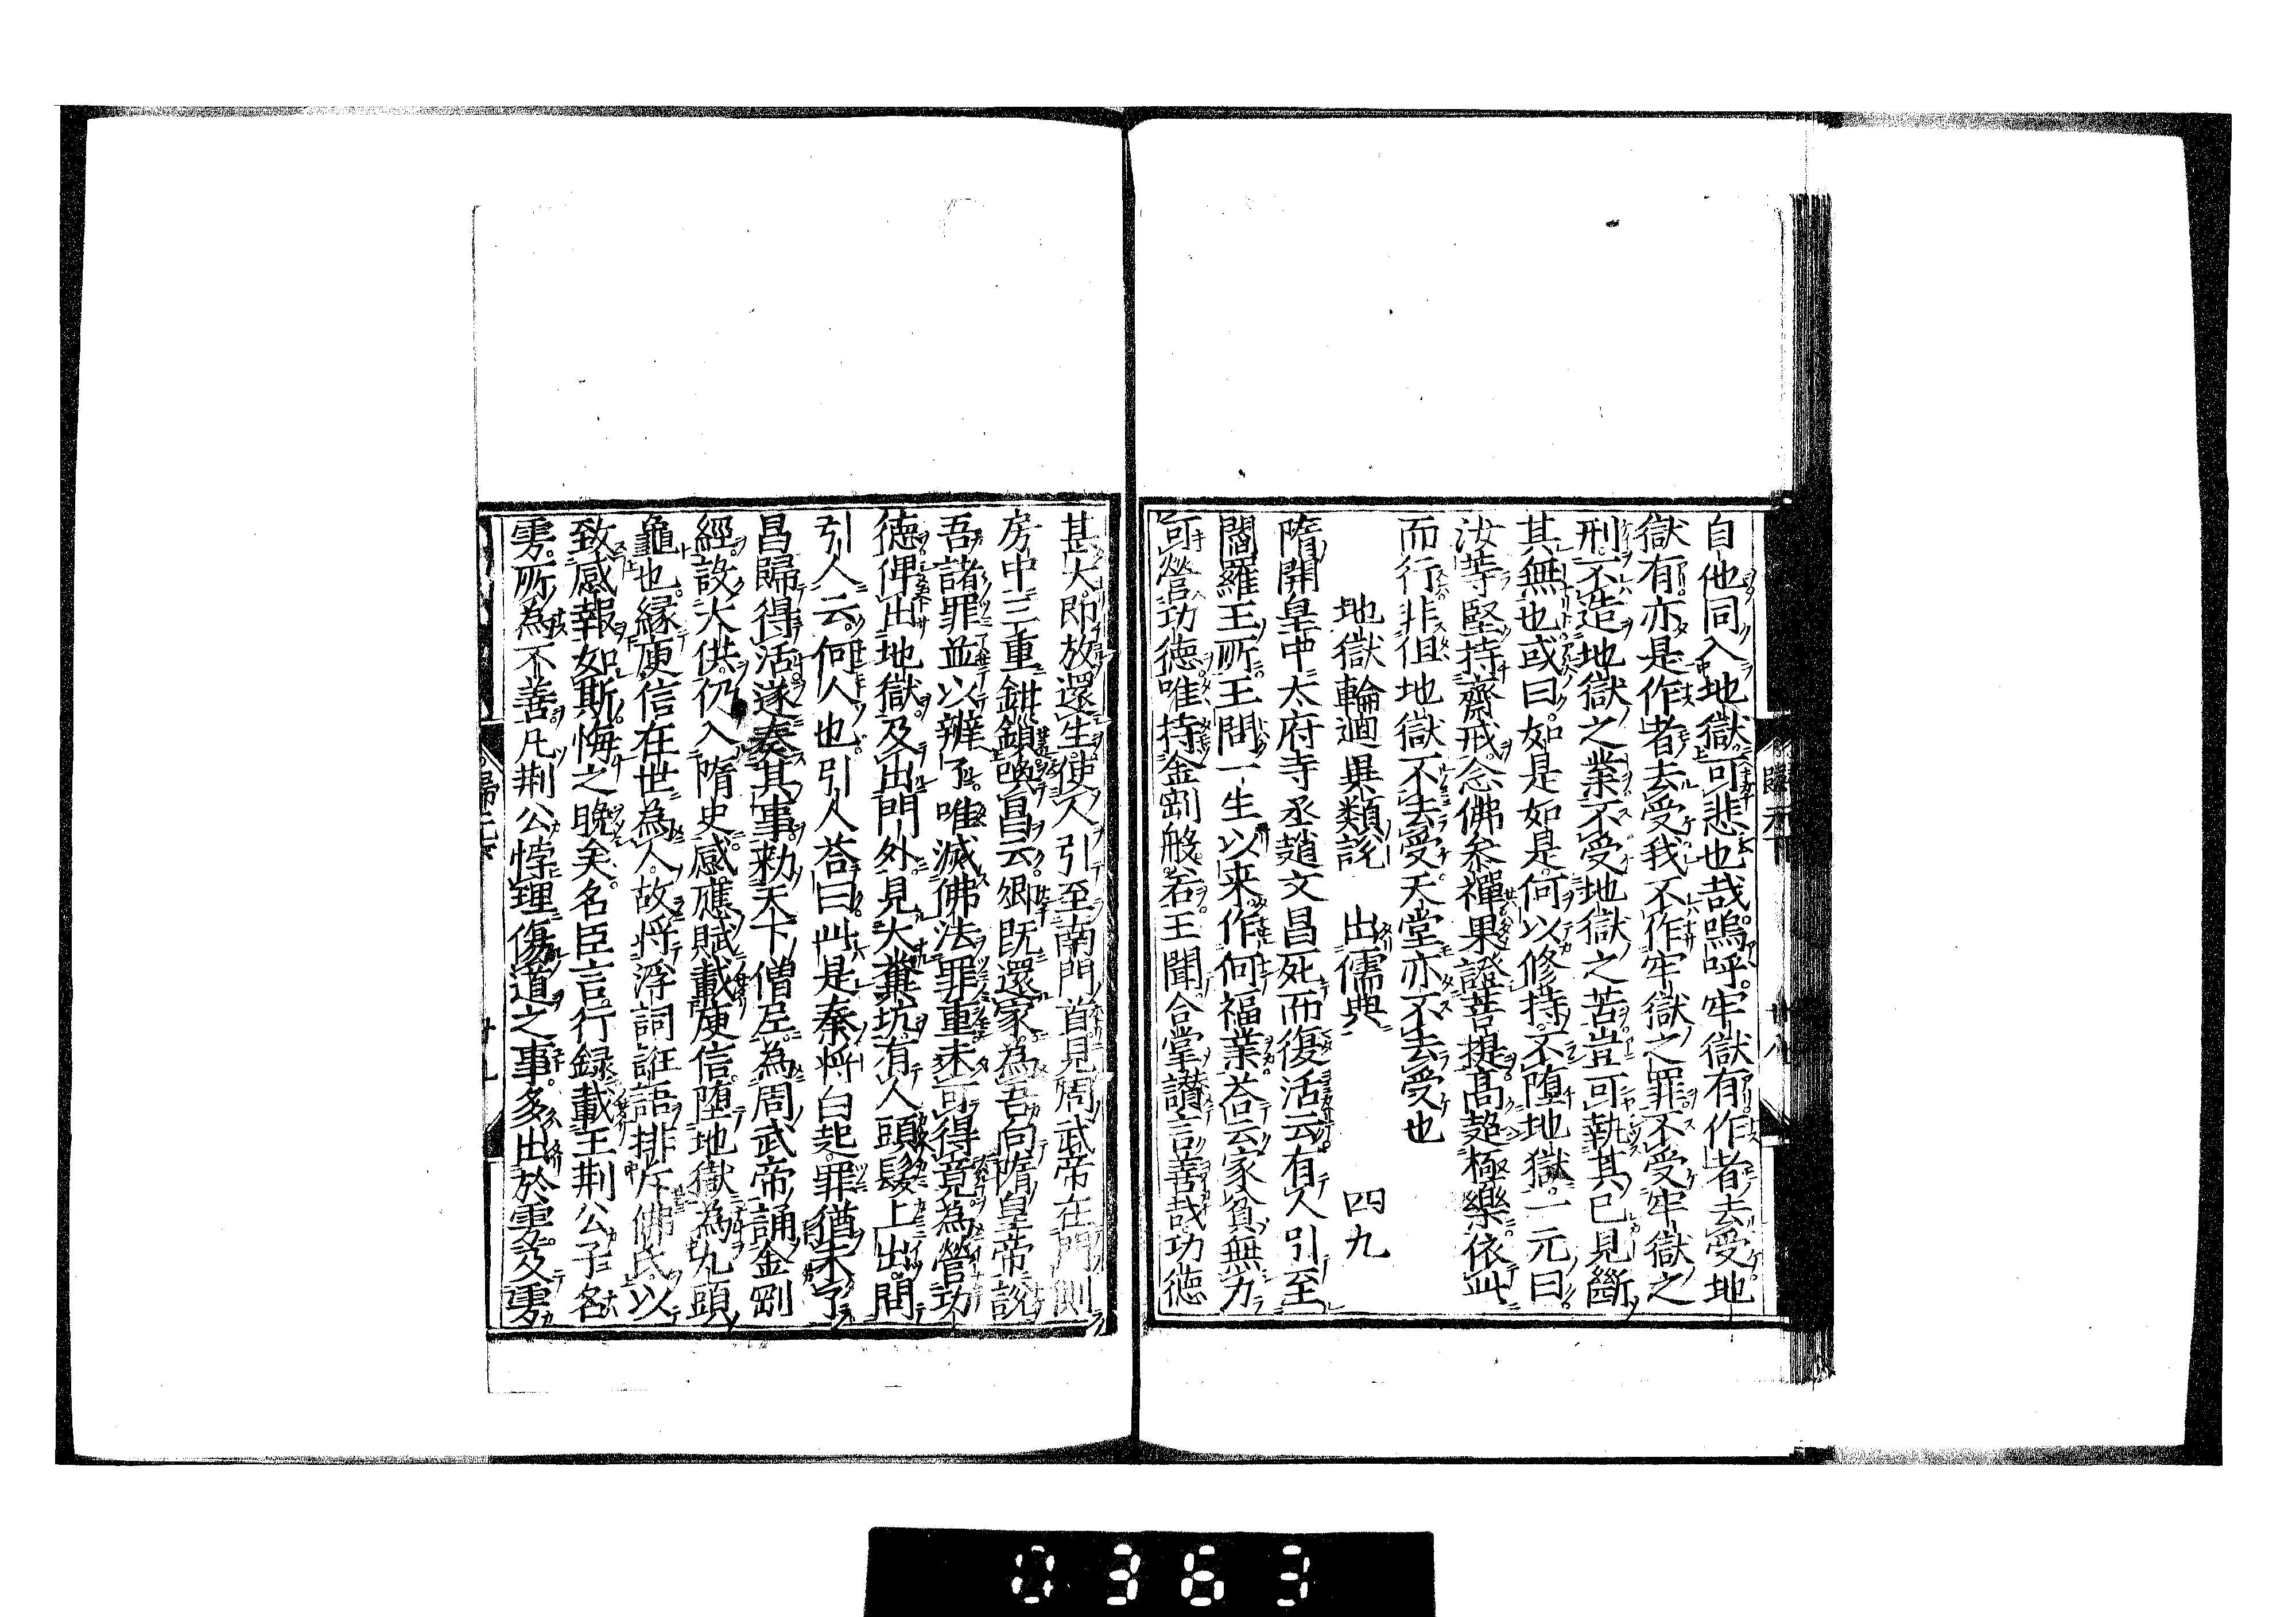 自他同入地獄可悲也哉嗚呼牢獄有作者去受地
獄有亦是作者去受我不作牢獄之罪不受牢獄之
刑不造地獄之業不受地獄之苦豈可執其已見斷
其無也或曰如是如是何以修持不墮地獄一元曰
汝等堅持齋戒念佛參禪果證菩提髙超極樂依此
而行非但地獄不去受天堂亦不去受也
地獄輪迴異類説 出儒典 四九
隋開皇中太府寺丞趙文昌死而復活云有人引至
閻羅王所王問一生以来作何福業荅云家貧無力
可營功徳唯持金剛般若王聞合掌讃言善哉功徳
甚大即放還生使人引至南門首見周武帝在門側
房中三重鉗鎖喚昌云卿既還家為吾向隋皇帝説
吾諸罪並以辨了唯滅佛法罪重未可得竟為營功
徳俾出地獄及出門外見大糞坑有人頭髮上出問
引人云何人也引人荅曰此是秦将白起罪猶未了
昌歸得活遂奏其事勑天下僧尼為周武帝誦金剛
經設大供仍入隋史感應賦載庾信墮地獄為九頭
龜也縁庾信在世為人故将浮詞誑語排斥佛氏以
致感報如斯悔之晩矣名臣言行録載王荆公子名
雱所為不善凡荆公悖理傷道之事多出於雱及雱
歸元
廿八